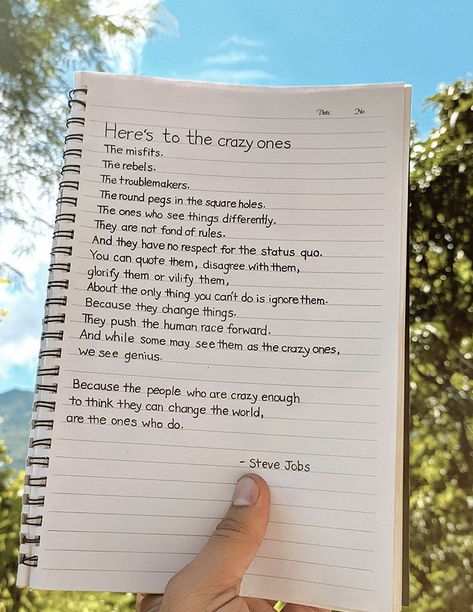 Date. No.
Here's to the crazy ones
The misfits.
The rebels.
The troublemakers.
The round pegs in the square holes.
The ones who see things differently.
They are not fond of rules.
And they have no respect for the status quo.
You can quote them, disagree with them,
glorify them or vilify them,
About the only thing you can't do is ignore them.
Because they change things.
They push the human race forward.
And while some may see them as the crazy ones,
we see genius.
Because the people who are crazy enough
to think they can change the world,
are the ones who do.
- Steve Jobs